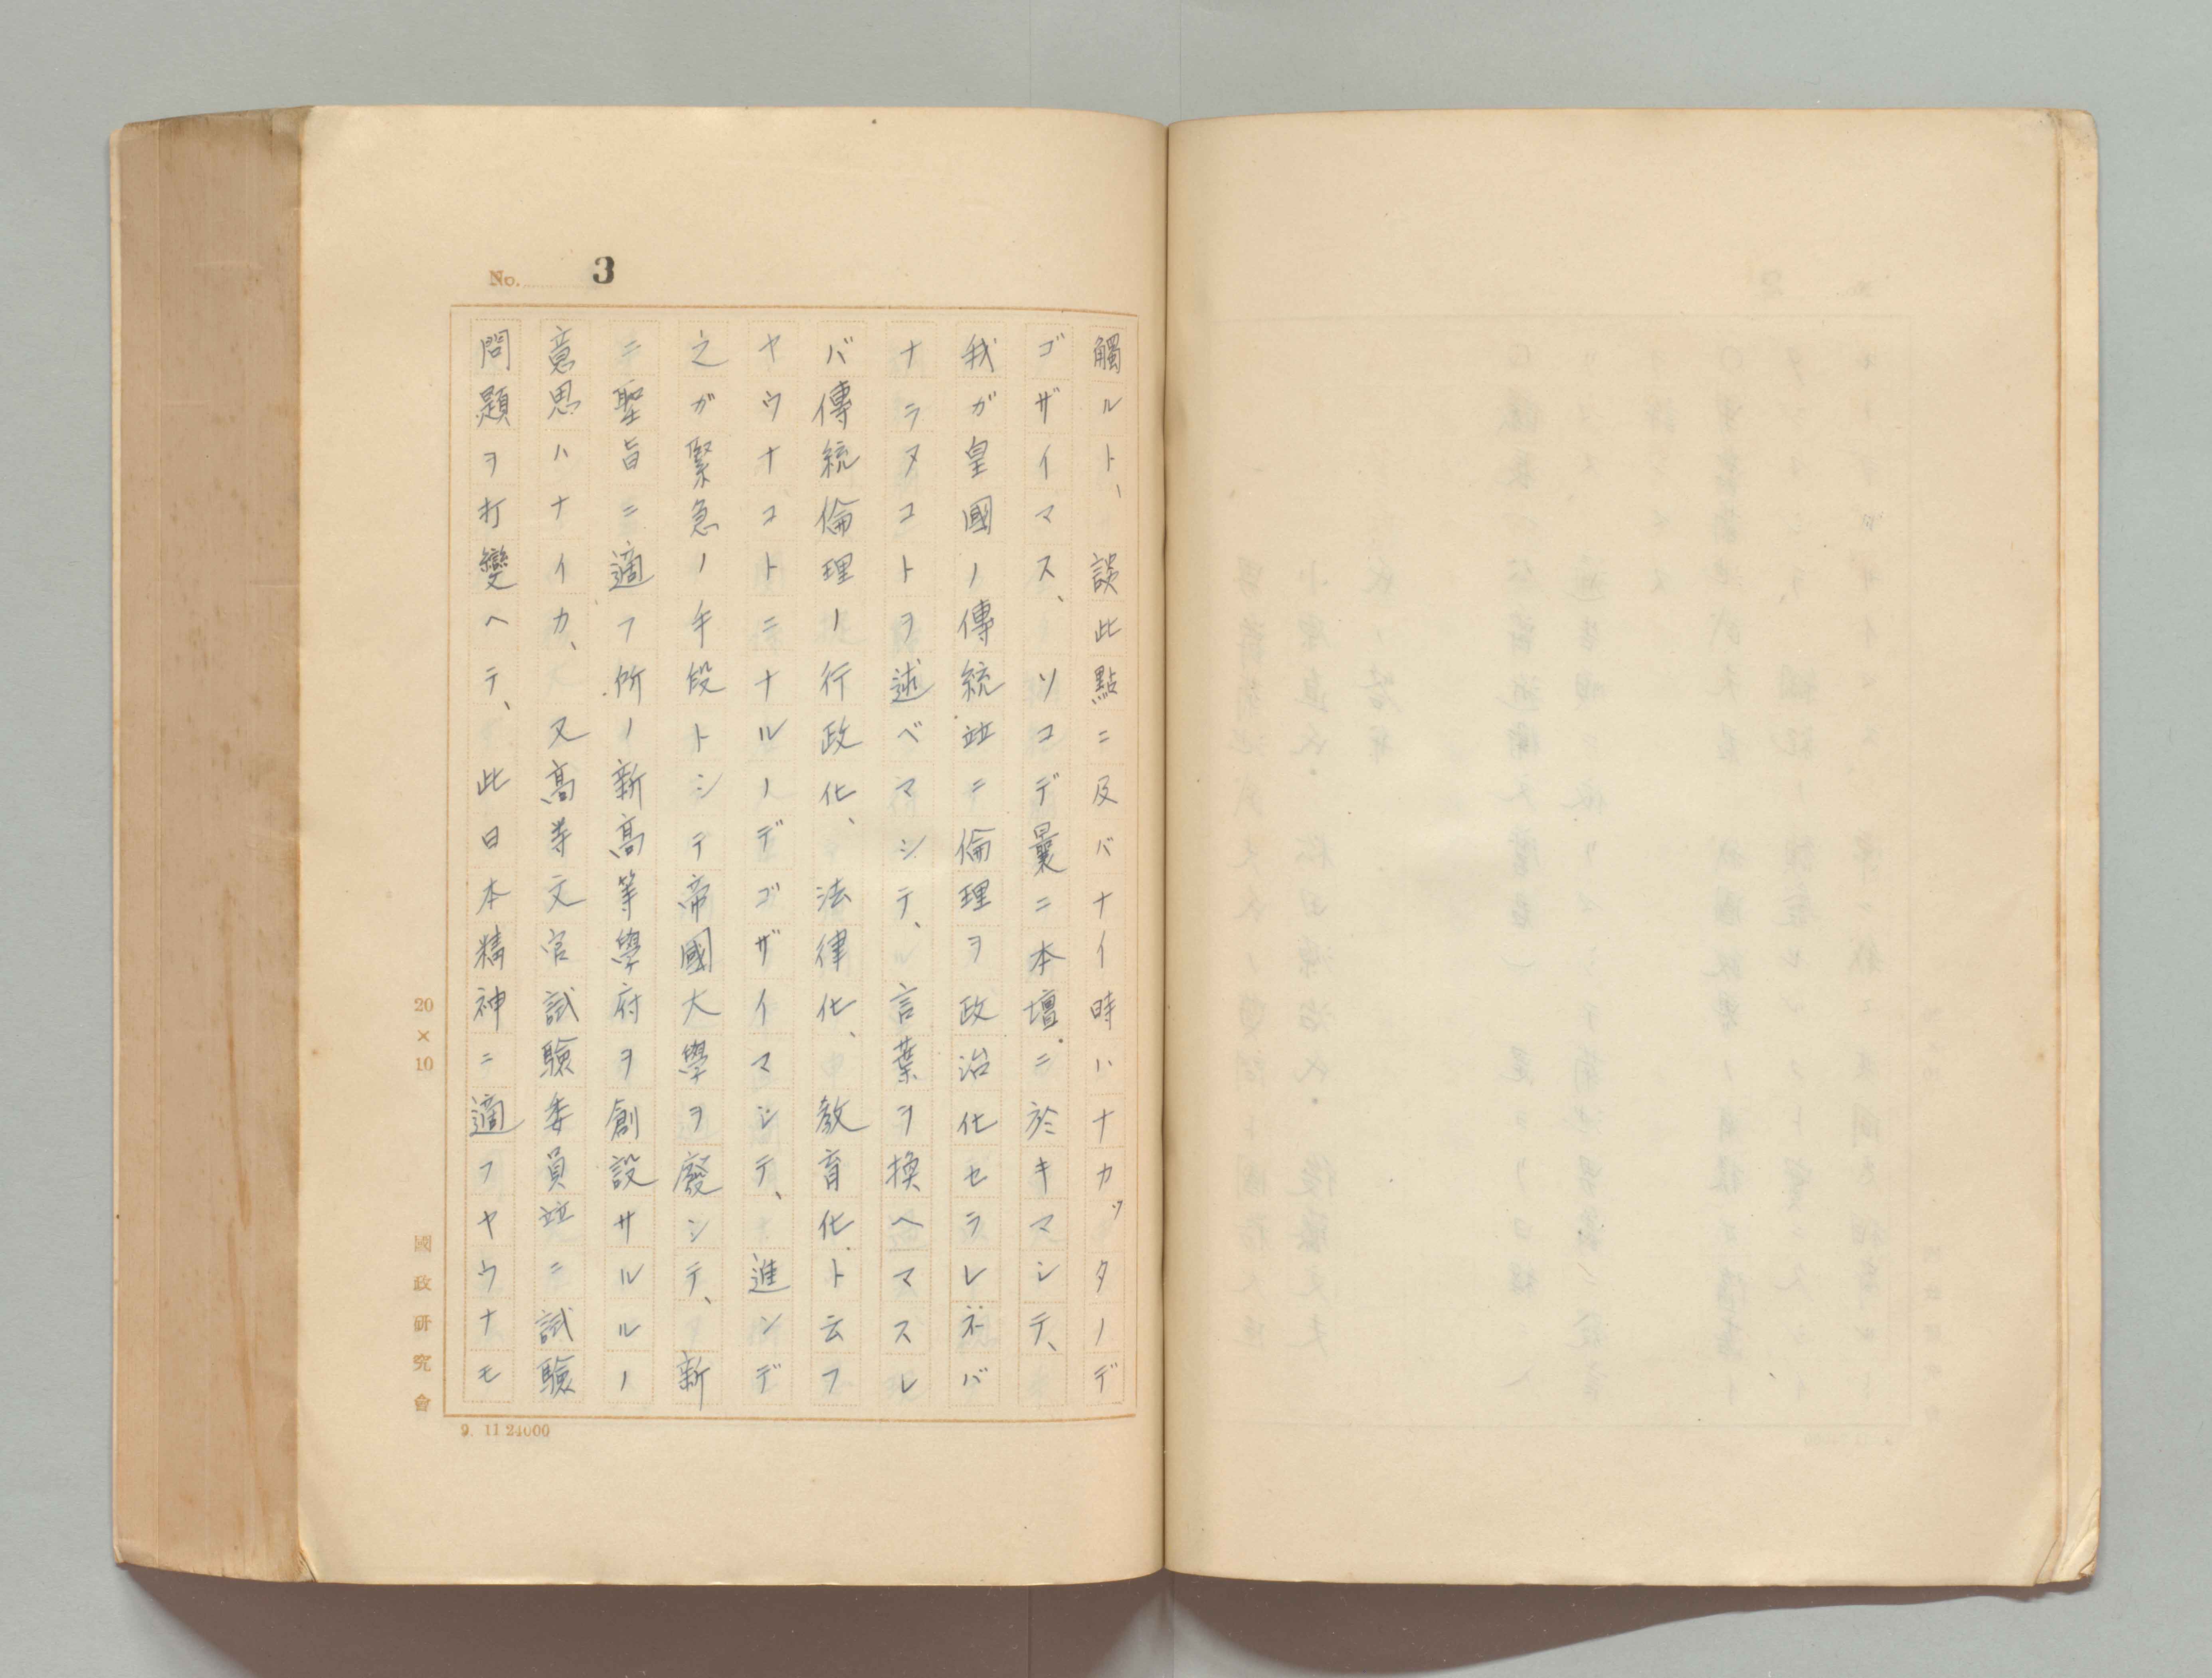 No. 3
觸ルト、談此點ニ及バナイ時ハナカッタノデ
ゴザイマス、ソコデ曩ニ本壇ニ於キマシテ、
我ガ皇國ノ傳統竝ニ倫理ヲ政治化セラレネバ
ナラヌコトヲ述ベマシテ、言葉ヲ換ヘマスレ
バ傳統倫理ノ行政化、法律化、教育化ト云フ
ヤウナコトニナルノデゴザイマシテ、進ンデ
之ガ緊急ノ手段トシテ帝國大學ヲ廢シテ、新
ニ聖旨ニ適フ所ノ新高等學府ヲ創設サルルノ
意思ハナイカ、又高等文官試驗委員竝ニ試驗
問題ヲ打變ヘテ、此日本精神ニ適フヤウナモ
20×10
國政研究會
9. 11 24000